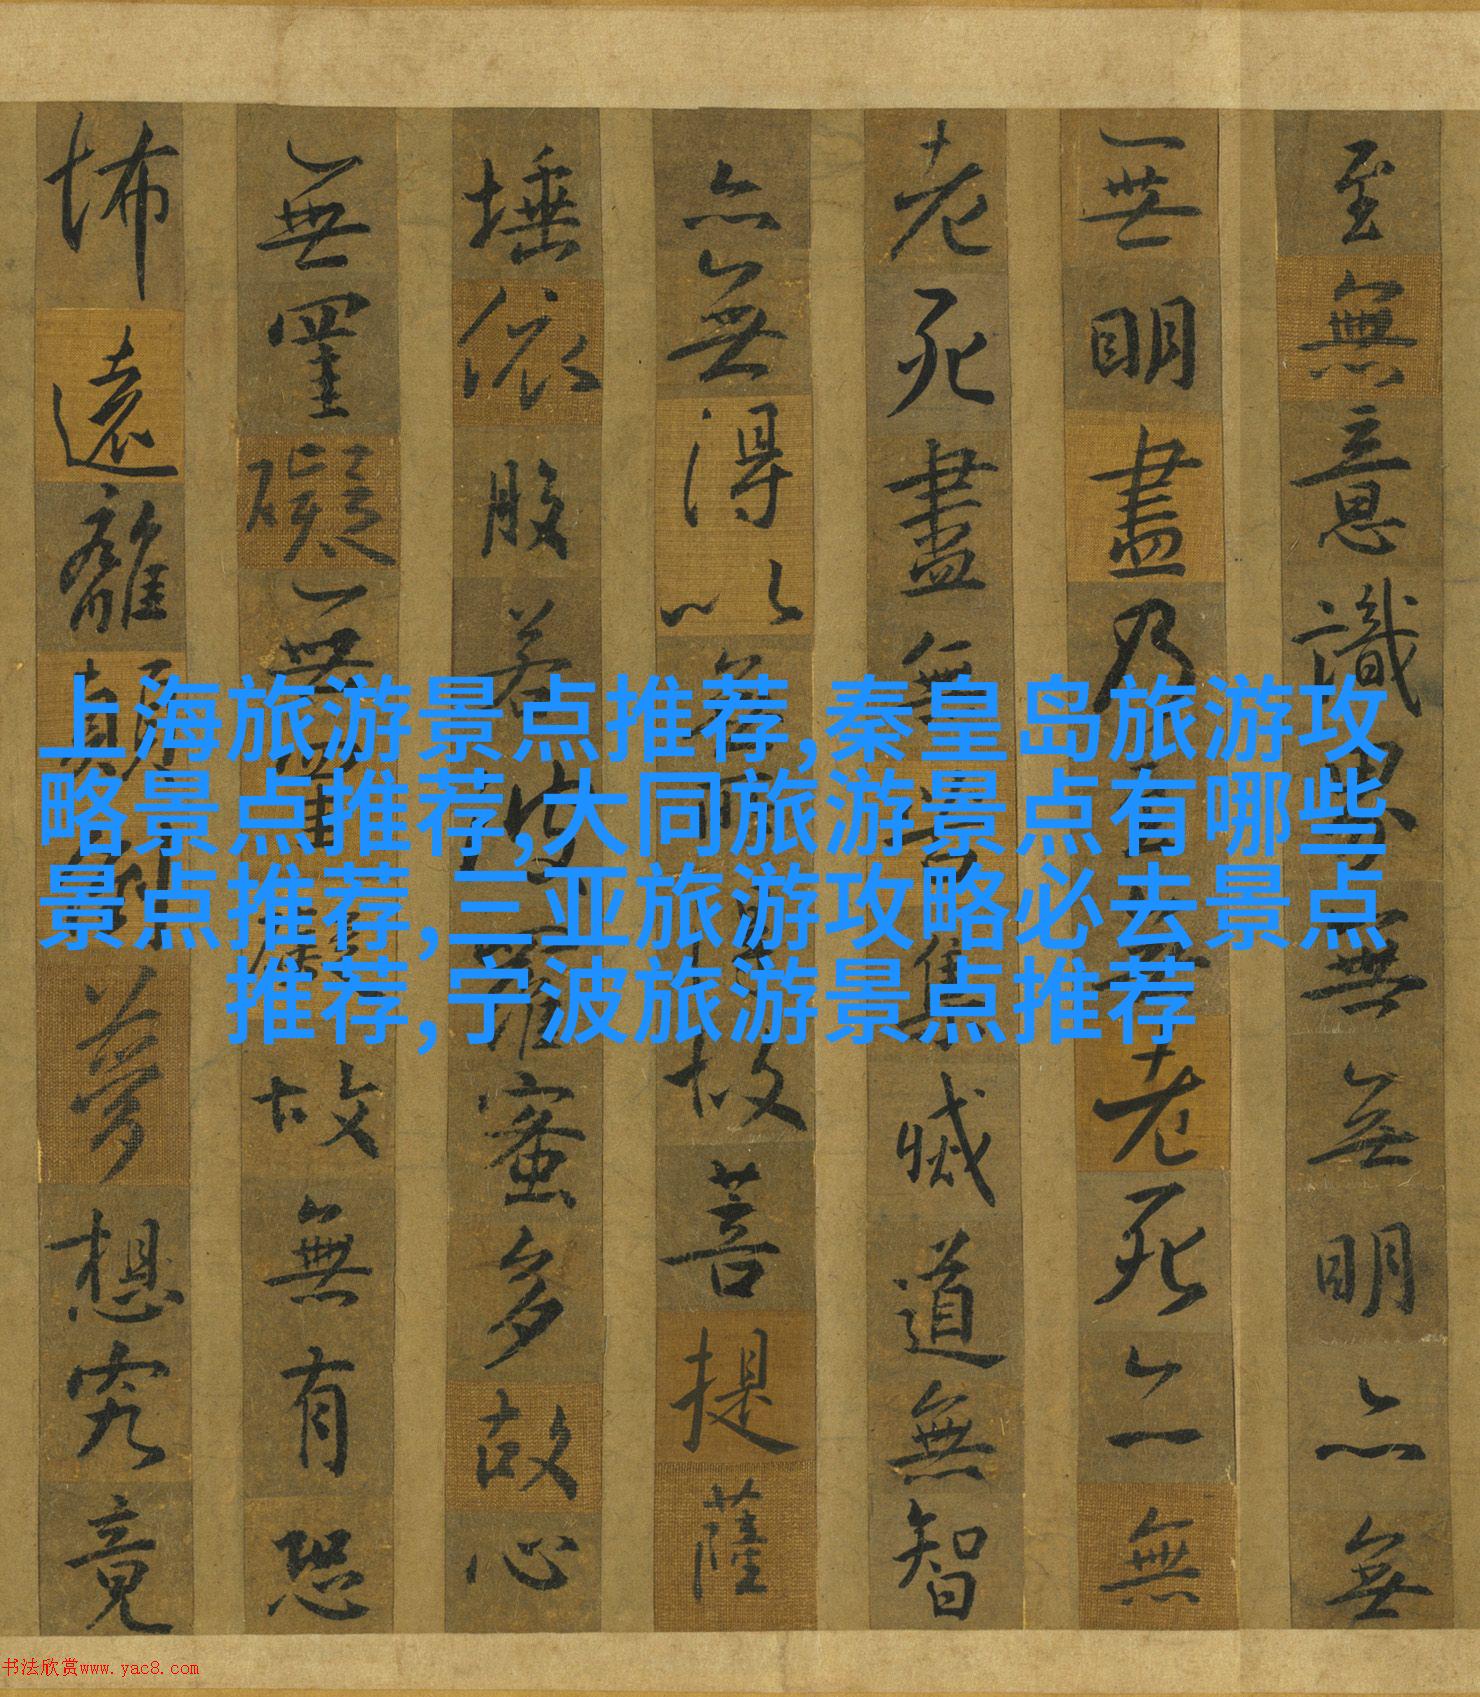 至無意識界無無明亦無
無明盡乃至無老死亦無
老死盡無苦集滅道無智
亦無得以無所得故菩提薩
埵依般若波羅蜜多故心
無罣礙無罣礙故無有恐
怖遠離顛倒夢想究竟
上海旅游景点推荐,秦皇岛旅游攻
略景点推荐,大同旅游景点有哪些
景点推荐,三亚旅游攻略必去景点
推荐,宁波旅游景点推荐
书法欣赏www.yac8.com